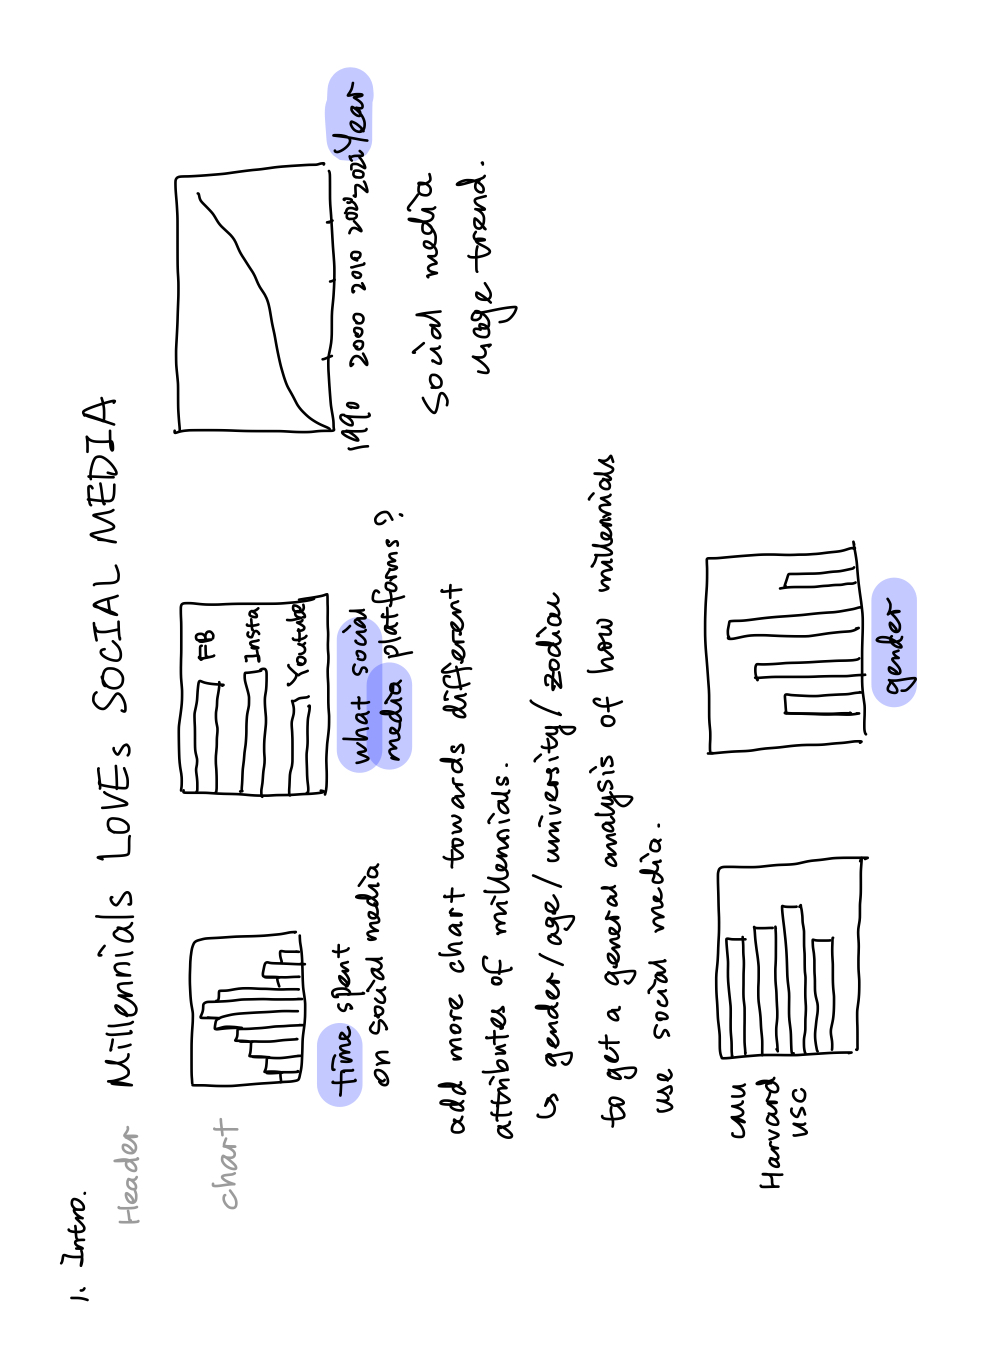 1. Intro.
Header Millennials LOVEs SOCIAL MEDIA
chart
FB
Insta
Youtube
time spent
on social media
what social
media platforms?
1990 2000 2010 2020 2022 Year
social media
usage trend.
add more chart towards different
attributes of millennials.
↳ gender/age/university/zodiac
to get a general analysis of how millennials
use social media.
CMU
Harvard
USC
gender